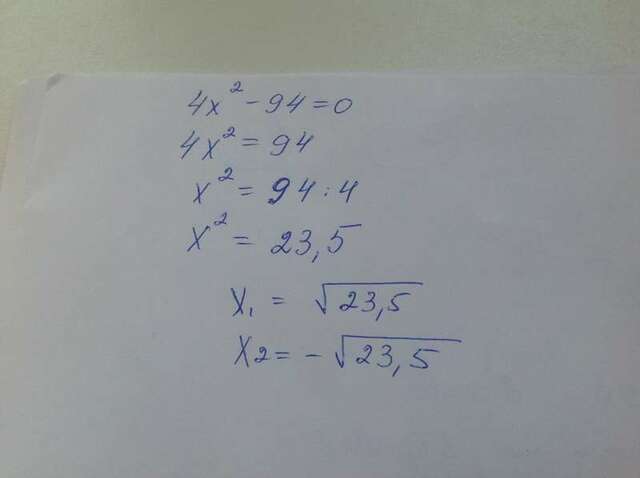 4x² - 94 = 0
4x² = 94
x² = 94 : 4
x² = 23,5
x₁ = √23,5
x₂ = -√23,5